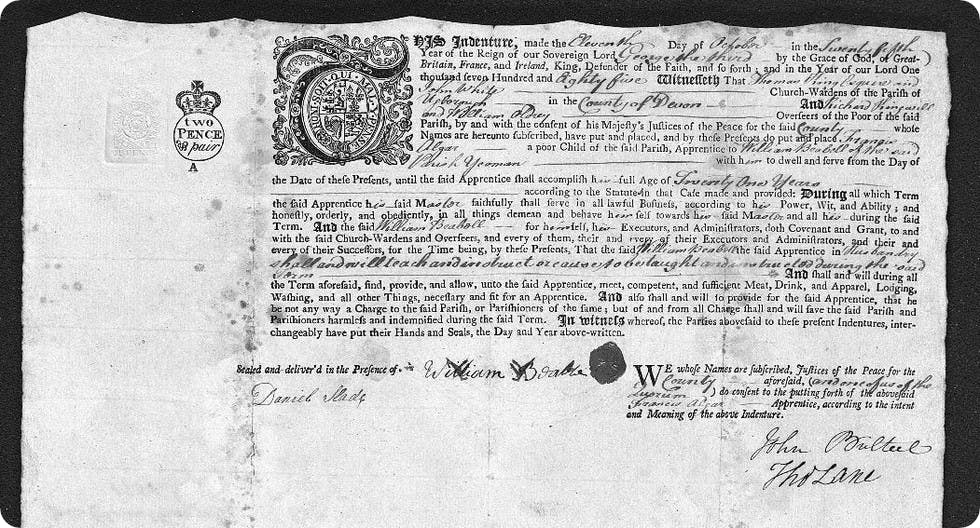 two
PENCE
pr pair
A
HONI·SOIT·QUI·MAL·Y·PENSE
THIS Indenture, made the Eleventh Day of October in the Twenty fifth
Year of the Reign of our Sovereign Lord George the third by the Grace of God, of Great-
Britain, France, and Ireland, King, Defender of the Faith, and so forth; and in the Year of our Lord One
thousand seven Hundred and Eighty five Witnesseth That Thomas King
John White Church-Wardens of the Parish of
Ugborough in the County of Devon And Richard Kingwell
and William Overseers of the Poor of the said
Parish, by and with the consent of his Majesty's Justices of the Peace for the said County whose
Names are hereunto subscribed, have put and placed, and by these Presents do put and place Francis
Algar a poor Child of the said Parish, Apprentice to William Beaball of the said
Parish Yeoman with him to dwell and serve from the Day of
the Date of these Presents, until the said Apprentice shall accomplish his full Age of Twenty One Years
according to the Statute in that Case made and provided: During all which Term
the said Apprentice his said Master faithfully shall serve in all lawful Business, according to his Power, Wit, and Ability; and
honestly, orderly, and obediently, in all things demean and behave him self towards his said Master and all his during the said
Term. And the said William Beaball for himself, his Executors, and Administrators, doth Covenant and Grant, to and
with the said Church-Wardens and Overseers, and every of them, their and every of their Executors and Administrators, and their and
every of their Successors, for the Time being, by these Presents, That the said William Beaball the said Apprentice in Husbandry
shall and will teach and instruct or cause to be taught and instructed during the said
Term And shall and will during all
the Term aforesaid, find, provide, and allow, unto the said Apprentice, meet, competent, and sufficient Meat, Drink, and Apparel, Lodging,
Washing, and all other Things, necessary and fit for an Apprentice. And also shall and will so provide for the said Apprentice, that he
be not any way a Charge to the said Parish, or Parishioners of the same; but of and from all Charge shall and will save the said Parish and
Parishioners harmless and indemnified during the said Term. In witness whereof, the Parties abovesaid to these present Indentures, inter-
changeably have put their Hands and Seals, the Day and Year above-written.
Sealed and deliver'd in the Presence of
William Beable
Daniel Slade
WE whose Names are subscribed, Justices of the Peace for the
County aforesaid, (and one of us of the
Quorum) do consent to the putting forth of the abovesaid
Francis Algar Apprentice, according to the intent
and Meaning of the above Indenture.
John Bulteel
Tho Lane